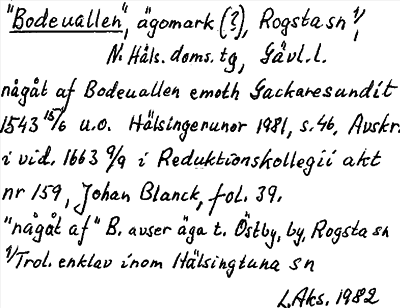 "Bodeuallen", ägomark (?), Rogsta sn 1/,
N. Häls. doms. tg, Gävl. l.
någåt af Bodeuallen emoth Gackaresundit
1543 15/6 u.o. Hälsingerunor 1981, s. 46, Avskr.
i vid. 1663 9/9 i Reduktionskollegii akt
nr 159, Johan Blanck, fol. 39.
"någåt af" B. avser äga t. Östby, by, Rogsta sn
1/ Trol. enklav inom Hälsingtuna sn
L. Aks. 1982